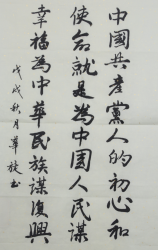 中國共產黨人的初心和
使命就是為中国人民謀
幸福為中华民族謀復興
戊戌秋月華旋书